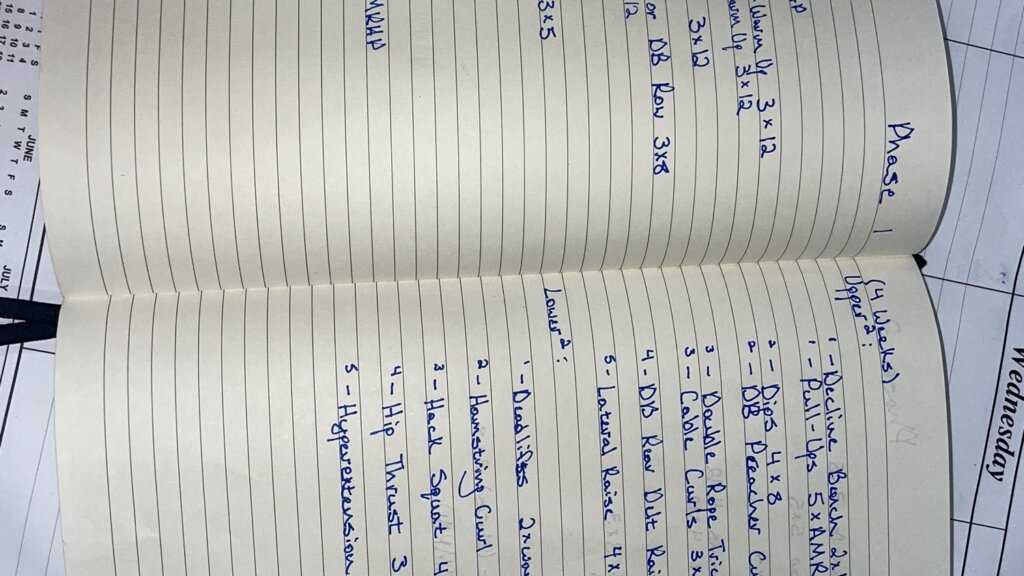 Phase 1
Warm Up 3 x 12
Warm Up 3 x 12
3 x 12
or DB Row 3x8
12
3 x 5
MRAP
(4 Weeks)
Upper 2:
1 - Decline Bench 2x
1 - Pull-Ups 5 x AMR
2 - Dips 4 x 8
2 - DB Preacher Cu
3 - Double Rope Tric
3 - Cable Curls 3x
4 - DB Rear Delt Rai
5 - Lateral Raise 4x
Lower 2:
1 - Deadlifts 2xwar
2 - Hamstring Curl
3 - Hack Squat 4
4 - Hip Thrust 3
5 - Hyperextension
Wednesday
JUNE
S M T W T F S
JULY